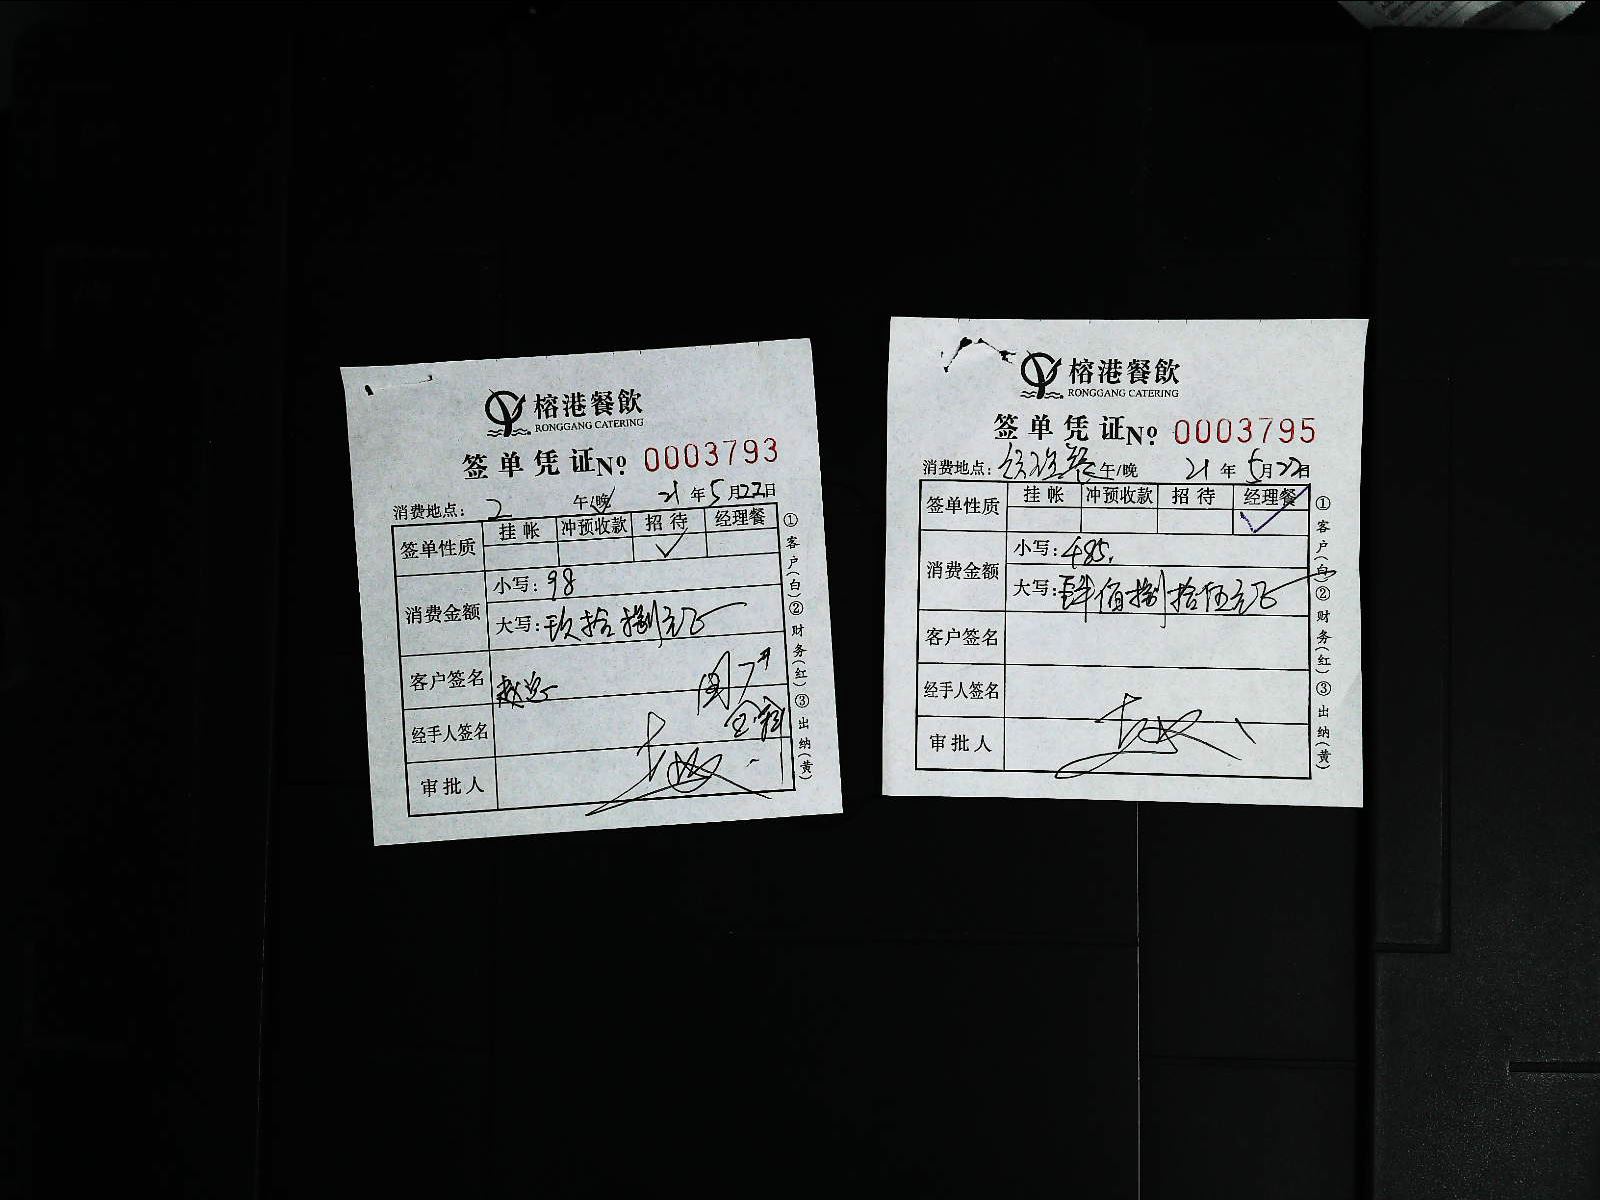 榕港餐飲
RONGGANG CATERING
签单凭证№ 0003793
消费地点: 2 午/晚 21年5月22日
签单性质 挂帐 冲预收款 招待 经理餐
消费金额 小写: 98
大写: 玖拾捌元正
客户签名
经手人签名
审批人
①客户(白)②财务(红)③出纳(黄)
榕港餐飲
RONGGANG CATERING
签单凭证№ 0003795
消费地点: 午/晚 21年5月22日
签单性质 挂帐 冲预收款 招待 经理餐
消费金额 小写: 485.
大写: 肆佰捌拾伍元正
客户签名
经手人签名
审批人
①客户(白)②财务(红)③出纳(黄)